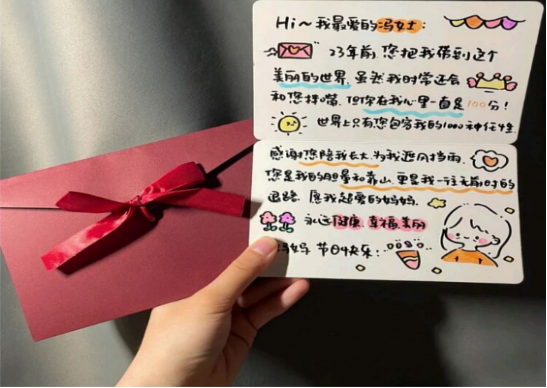 Hi~我最爱的冯女士:
23年前,您把我带到这个
美丽的世界,虽然我时常还会
和您拌嘴,但你在我心里一直是100分!
世界上只有您包容我的1000种任性
感谢您陪我长大,为我遮风挡雨,
您是我的胆量和靠山,更是我一往无前时的
退路,愿我越爱的妈妈,
永远健康,幸福,美丽
冯妈,节日快乐: